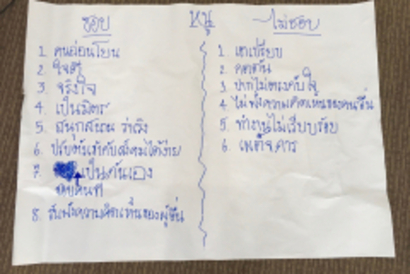 ชอบ
หนู
ไม่ชอบ
1. คนอ่อนโยน
2. ใจดี
3. จริงใจ
4. เป็นมิตร
5. สนุกสนาน ร่าเริง
6. ปรับตัวเข้ากับสังคมได้ง่าย
7. เป็นกันเอง
8. รับฟังความคิดเห็นของผู้อื่น
1. เอาเปรียบ
2. กดดัน
3. ปากไม่ตรงกับใจ
4. ไม่ฟังความคิดเห็นของคนอื่น
5. ทำงานไม่เรียบร้อย
6. เผด็จการ